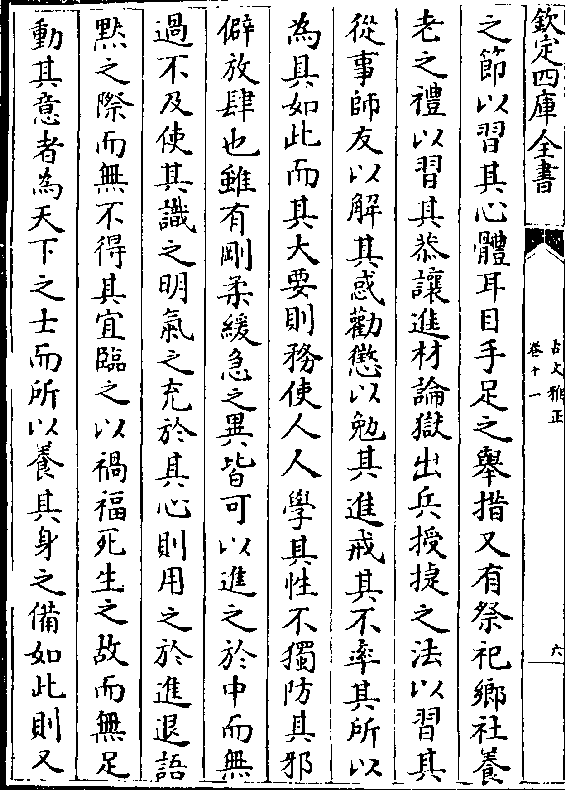 欽定四庫全書
古文雅正
卷十一
六
之節以習其心體耳目手足之舉措又有祭祀鄉社養
老之禮以習其恭讓進材論獄出兵授捷之法以習其
從事師友以解其惑勸懲以勉其進戒其不率其所以
為具如此而其大要則務使人人學其性不獨防其邪
僻放肆也雖有剛柔緩急之異皆可以進之於中而無
過不及使其識之明氣之充於其心則用之於進退語
黙之際而無不得其宜臨之以禍福死生之故而無足
動其意者為天下之士而所以養其身之備如此則又